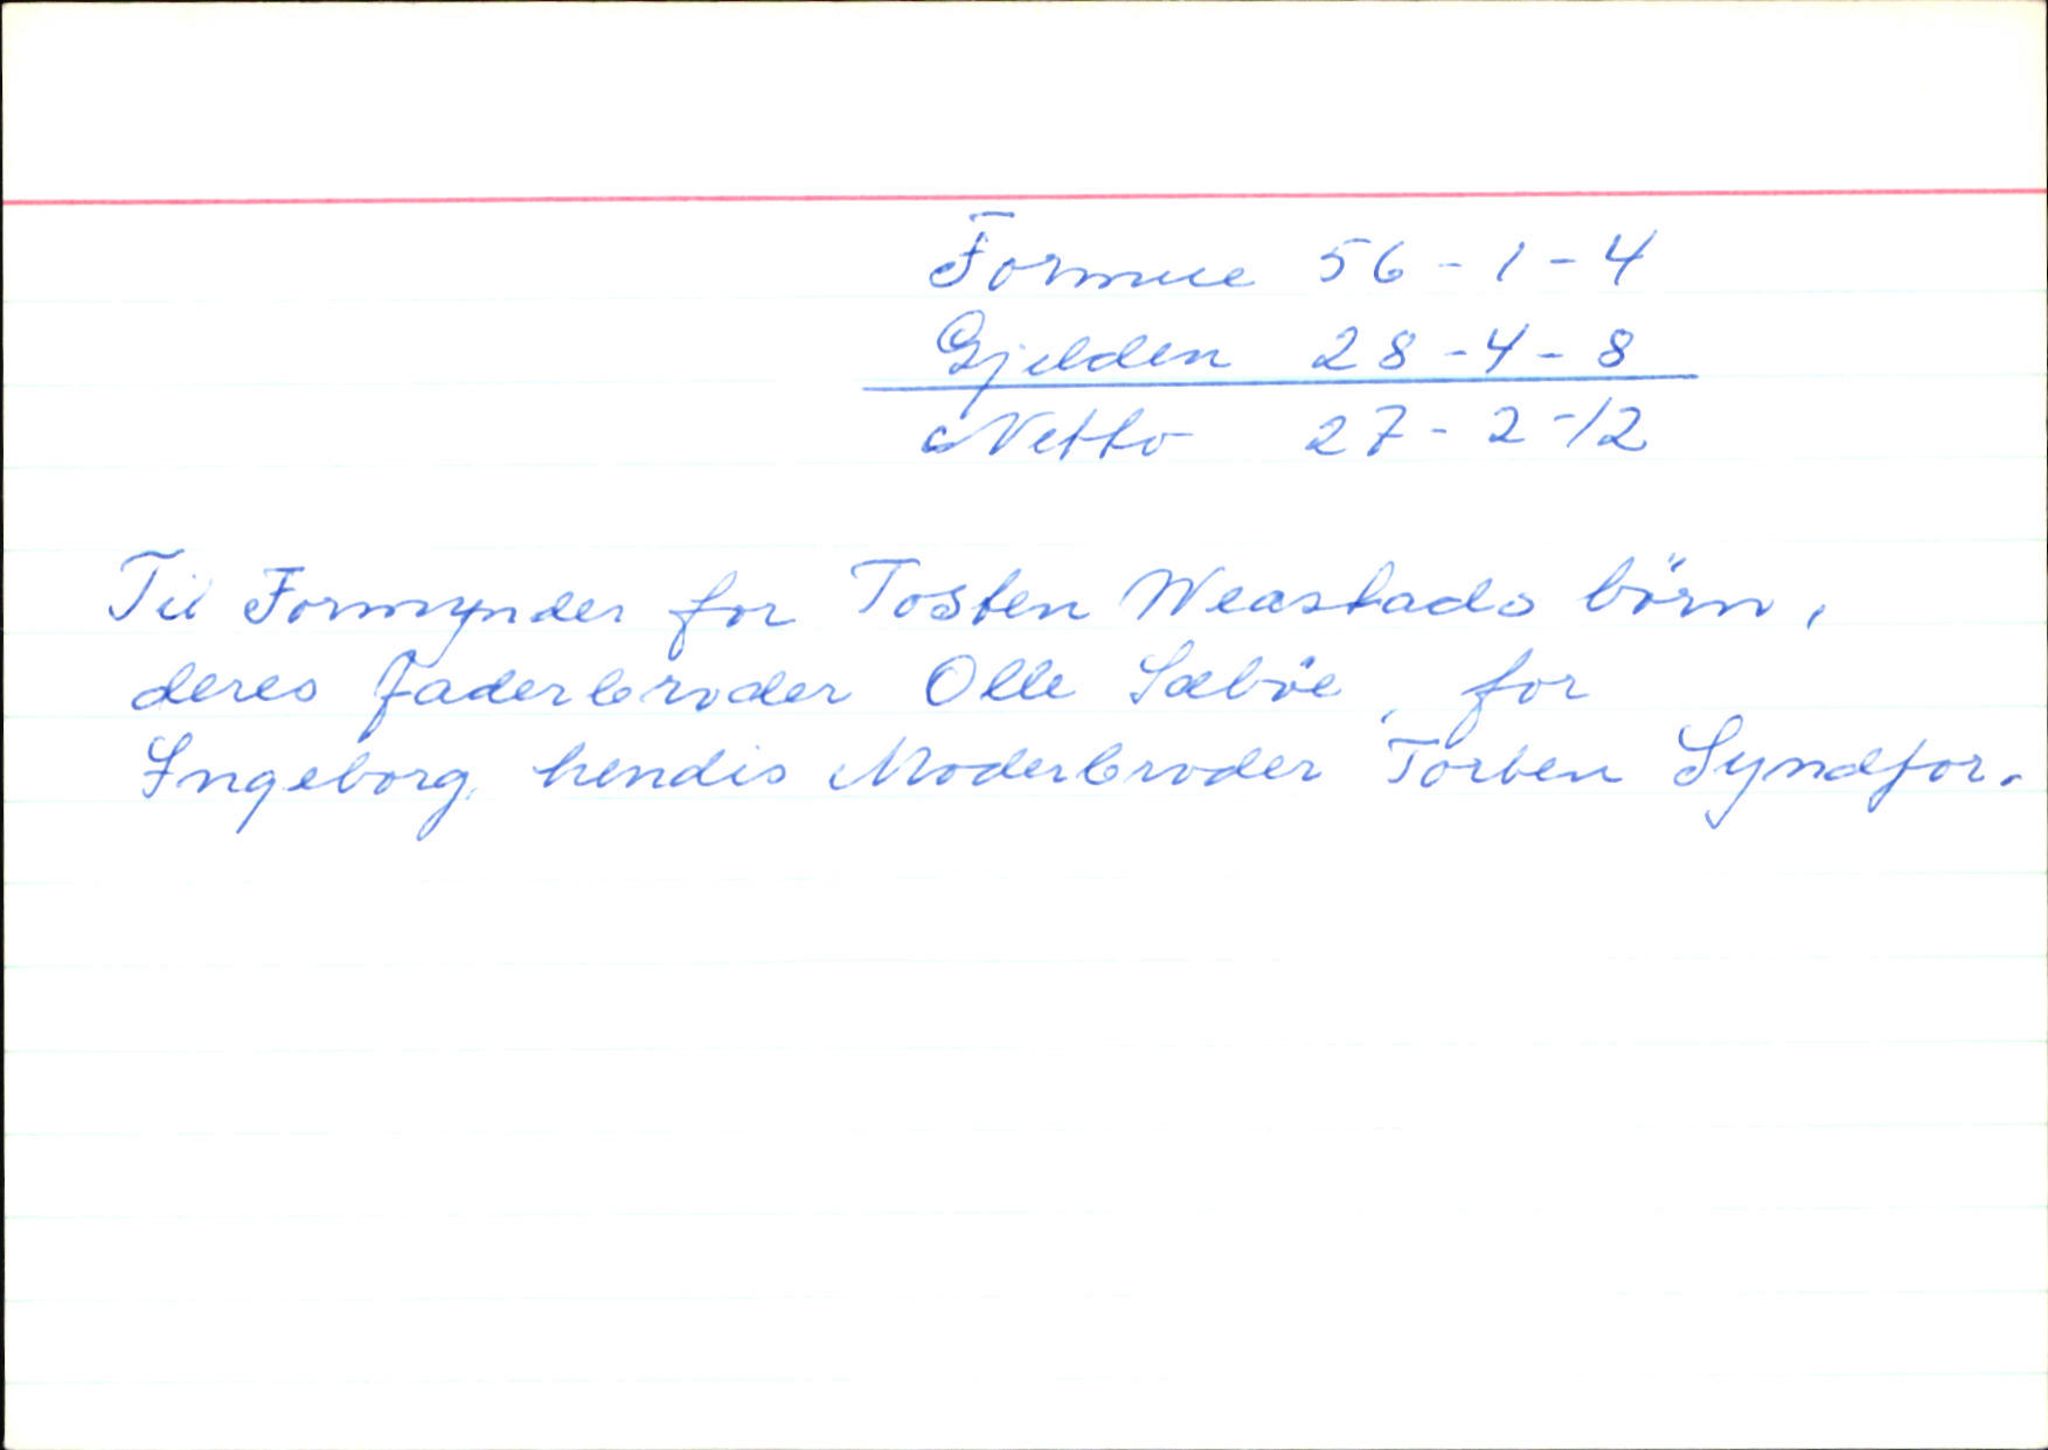 Formue 56 - 1 - 4
Gjelden 28 - 4 - 8
Netto 27 - 2 - 12
Til Formynder for Tosten Weastads börn,
deres Faderbroder Olle Sæböe, for
Ingeborg, hendis Moderbroder Torben Syndfor.